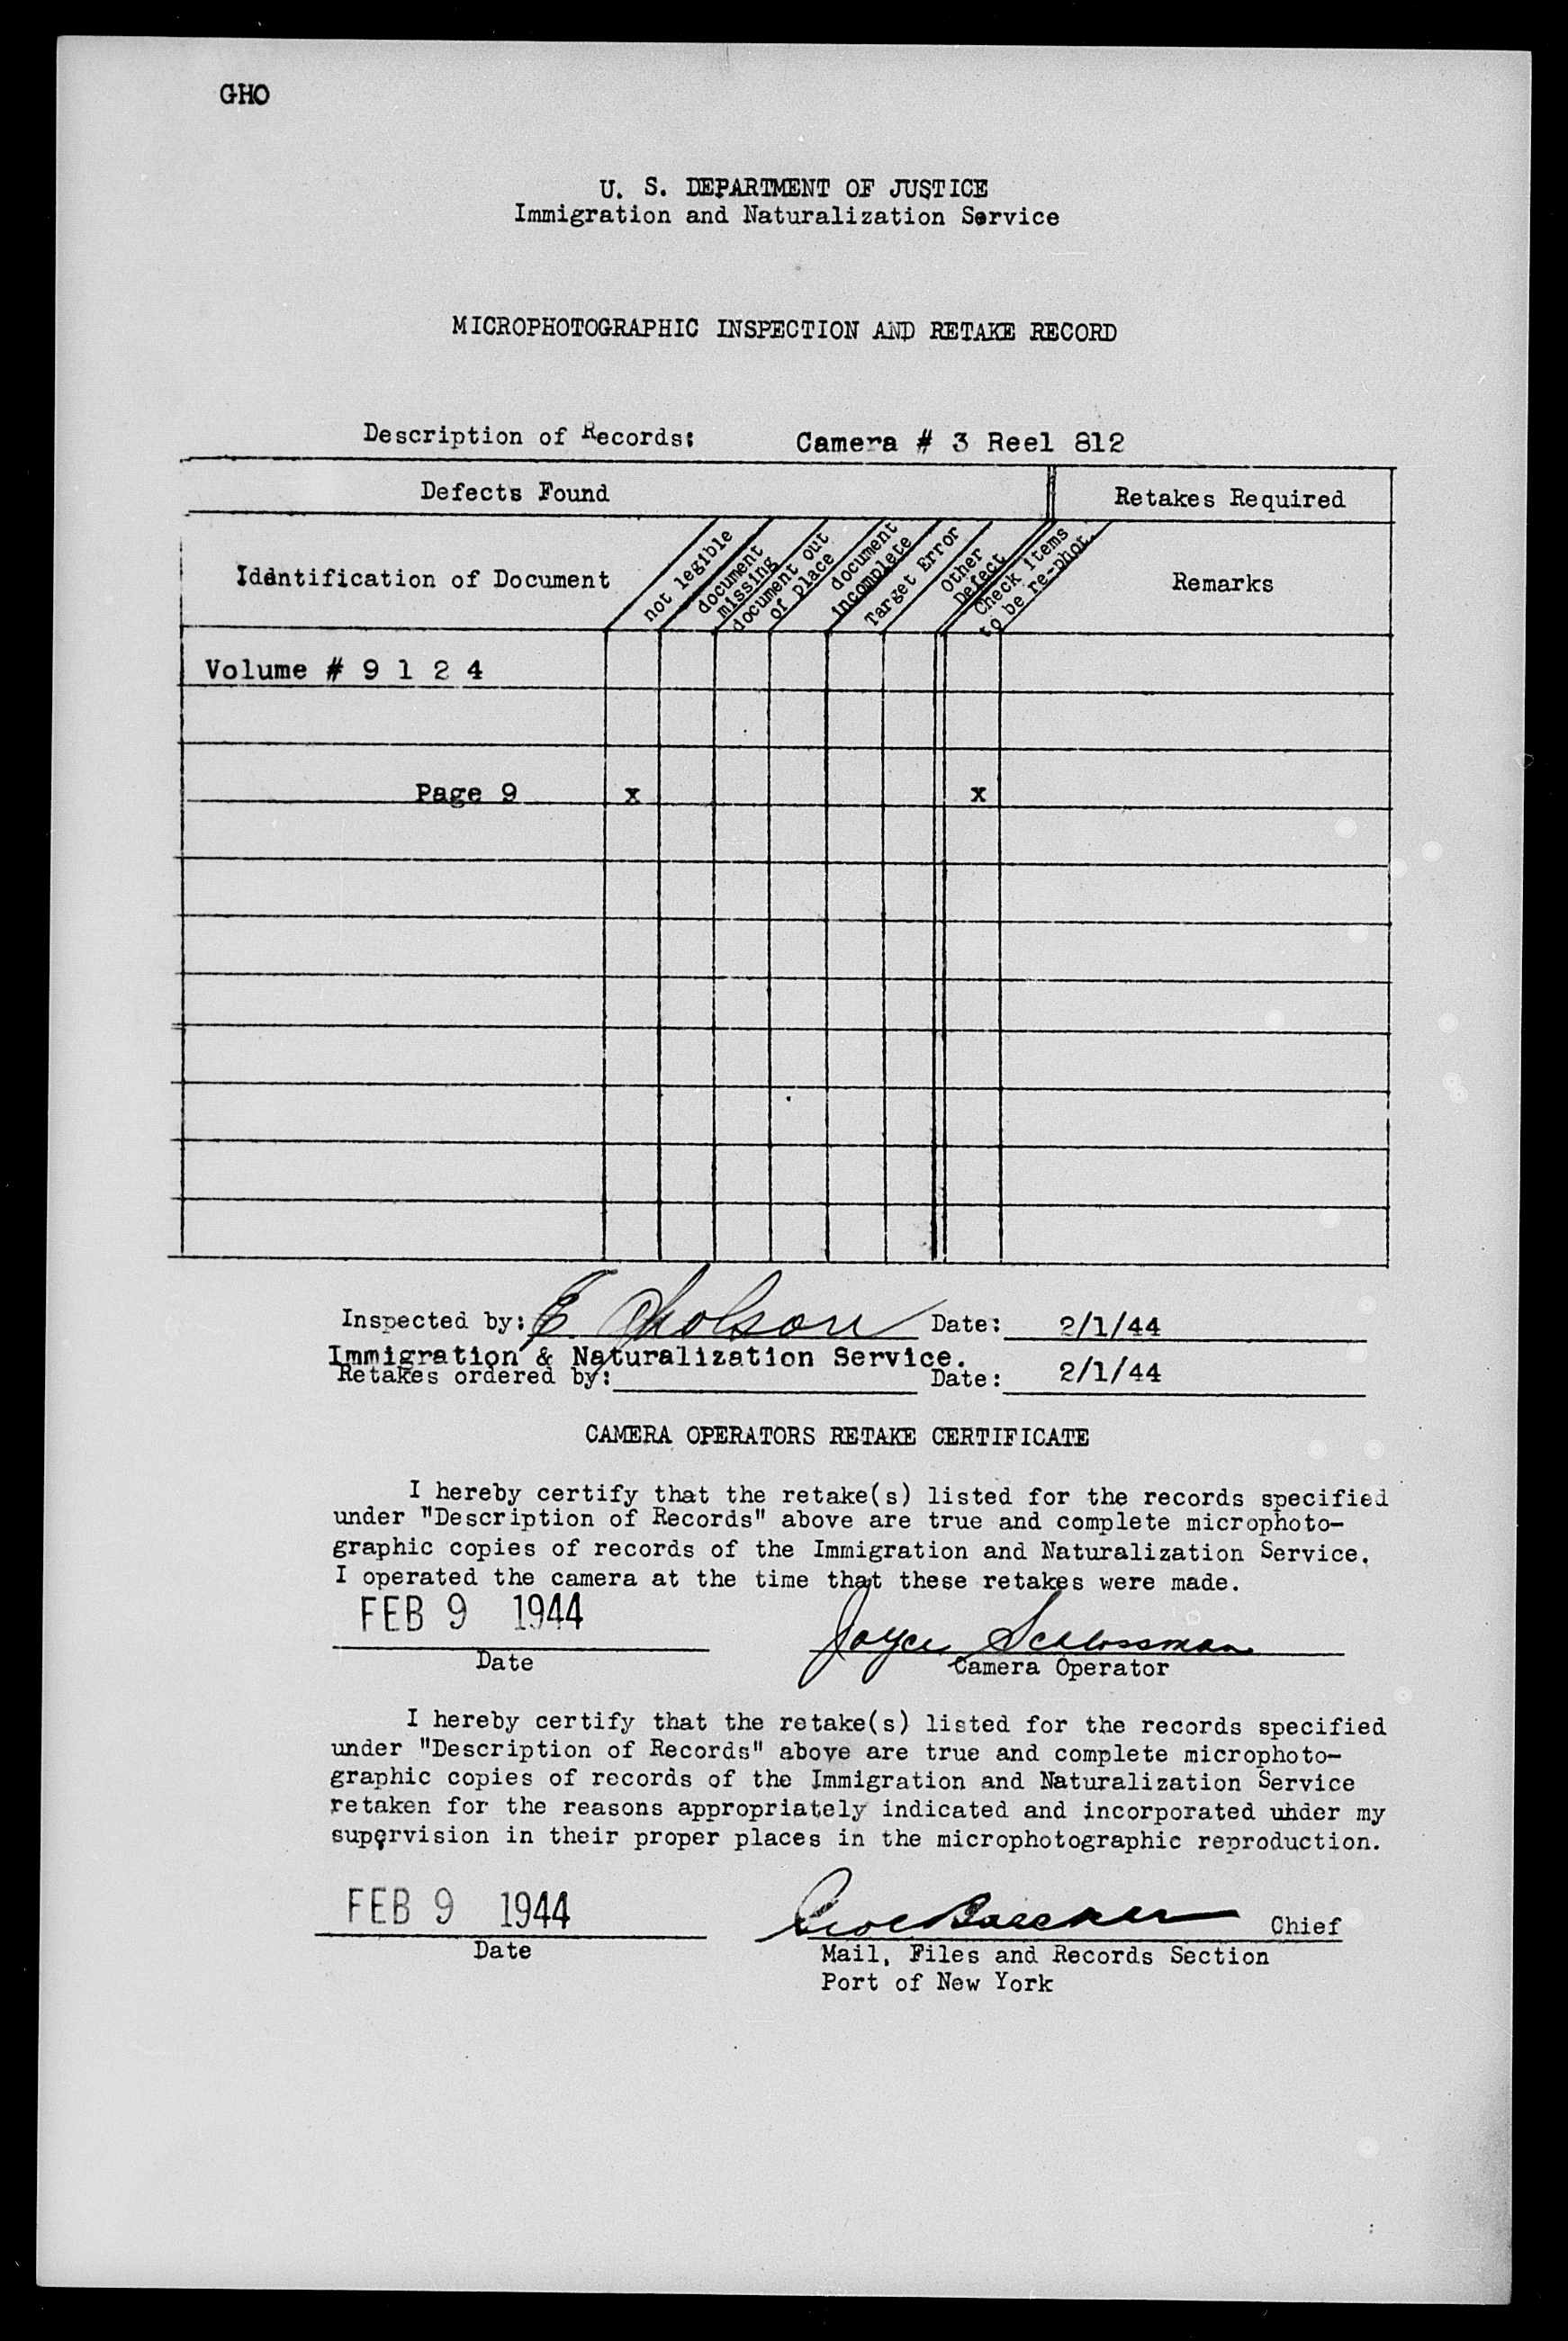 GHO
U. S. DEPARTMENT OF JUSTICE
Immigration and Naturalization Service
MICROPHOTOGRAPHIC INSPECTION AND RETAKE RECORD
Description of Records: Camera # 3 Reel 812
Defects Found Retakes Required
Identification of Document
not legible
document missing
document out of place
document incomplete
Target Error
Other Defect
Check items to be re-phot.
Remarks
Volume # 9 1 2 4
Page 9 x x
Inspected by: E. Date: 2/1/44
Immigration & Naturalization Service.
Retakes ordered by: Date: 2/1/44
CAMERA OPERATORS RETAKE CERTIFICATE
I hereby certify that the retake(s) listed for the records specified
under "Description of Records" above are true and complete microphoto-
graphic copies of records of the Immigration and Naturalization Service.
I operated the camera at the time that these retakes were made.
FEB 9 1944 Joyce Schlossman
Date Camera Operator
I hereby certify that the retake(s) listed for the records specified
under "Description of Records" above are true and complete microphoto-
graphic copies of records of the Immigration and Naturalization Service
retaken for the reasons appropriately indicated and incorporated under my
supervision in their proper places in the microphotographic reproduction.
FEB 9 1944 Chief
Date Mail, Files and Records Section
Port of New York